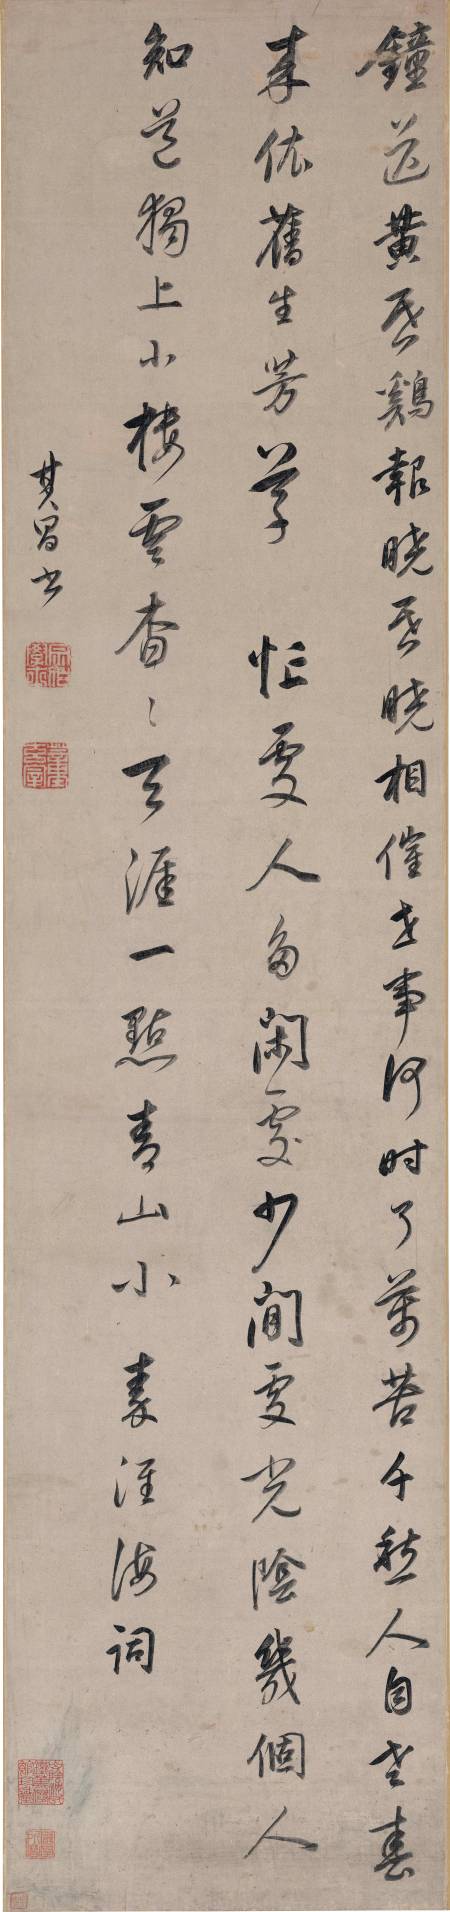 鐘送黃昏鷄報曉昏曉相催世事何時了萬苦千愁人自老春
來依舊生芳草 忙處人多閑處少閒處光陰幾個人
知道獨上小樓雲杳〻天涯一點青山小 秦淮海詞
其昌書